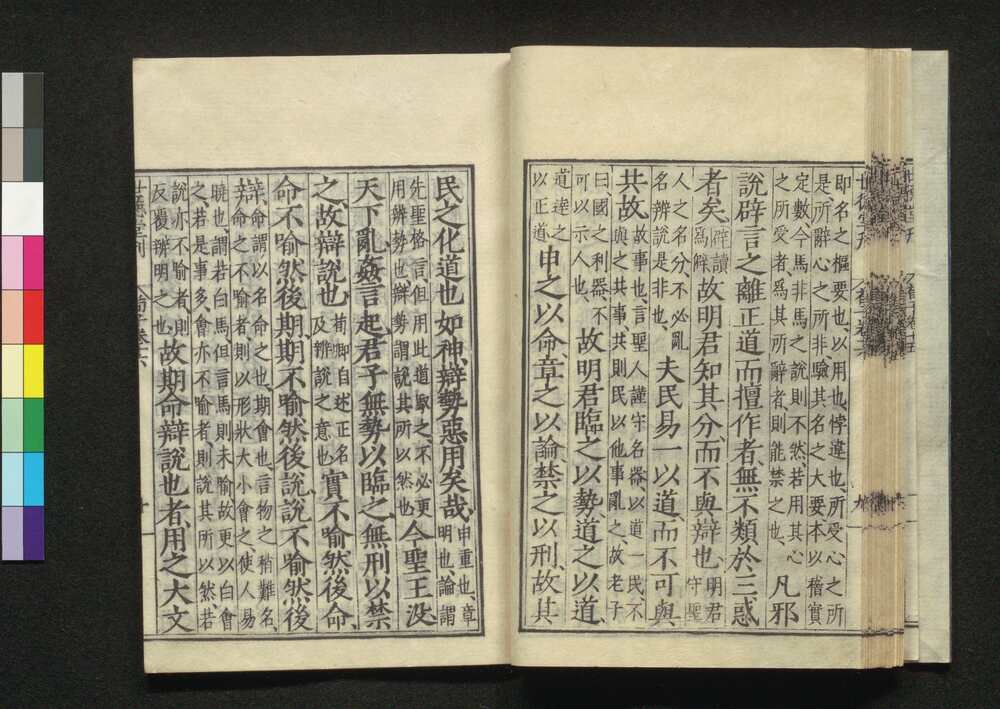 即名之樞要也、以用也、悖違也、所受心之所
是、所辭心之所非、驗其名之大要、本以稽實
定數、今馬非馬之說則不然、若用其心
之所受者、爲其所辭者、則能禁之也、
凡邪
說辟言之離正道而擅作者、無不類於三惑
者矣、
辟讀
爲僻
故明君知其分、而不與辯也、
明君
守聖
人之名分、不必亂
名辨說是非也、
夫民易一以道、而不可與
共故、
故事也、言聖人謹守名器、以道一民、不
與之共事、共則民以他事亂之、故老子
曰國之利器、不
可以示人也、
故明君臨之以勢、道之以道、
道達之
以正道
申之以命、章之以論、禁之以刑、故其
民之化道也如神、辯勢惡用矣哉、
申重也、章
明也、論謂
先聖格言、但用此道馭之、不必更
用辨勢也、辯勢謂說其所以然也、
今聖王沒、
天下亂、姦言起、君子無勢以臨之、無刑以禁
之、故辯說也、
荀卿自述正名
及辨說之意也、
實不喻然後命、
命不喻然後期、期不喻然後說、說不喻然後
辯、
命謂以名命之也、期會也、言物之稍難名、
命之不喻者、則以形狀大小會之、使人易
曉也、謂若白馬、但言馬則未喻、故更以白會
之、若是事多會亦不喻者、則說其所以然、若
說亦不喻者、則
反覆辨明之也、
故期命辯說也者、用之大文